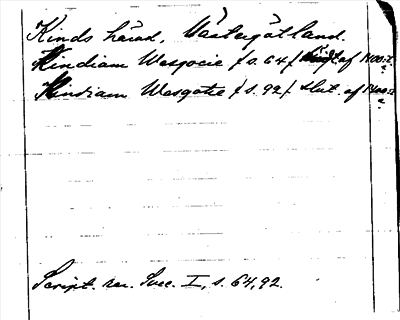 Kinds härad, Västergötland.
Kindiam Wesgocie /s. 64/ slut. af 1400:t.
Kindiam Wesgotie /s. 92/ slut. af 1400:t.
Script. rer. Svec. I, s. 64, 92.